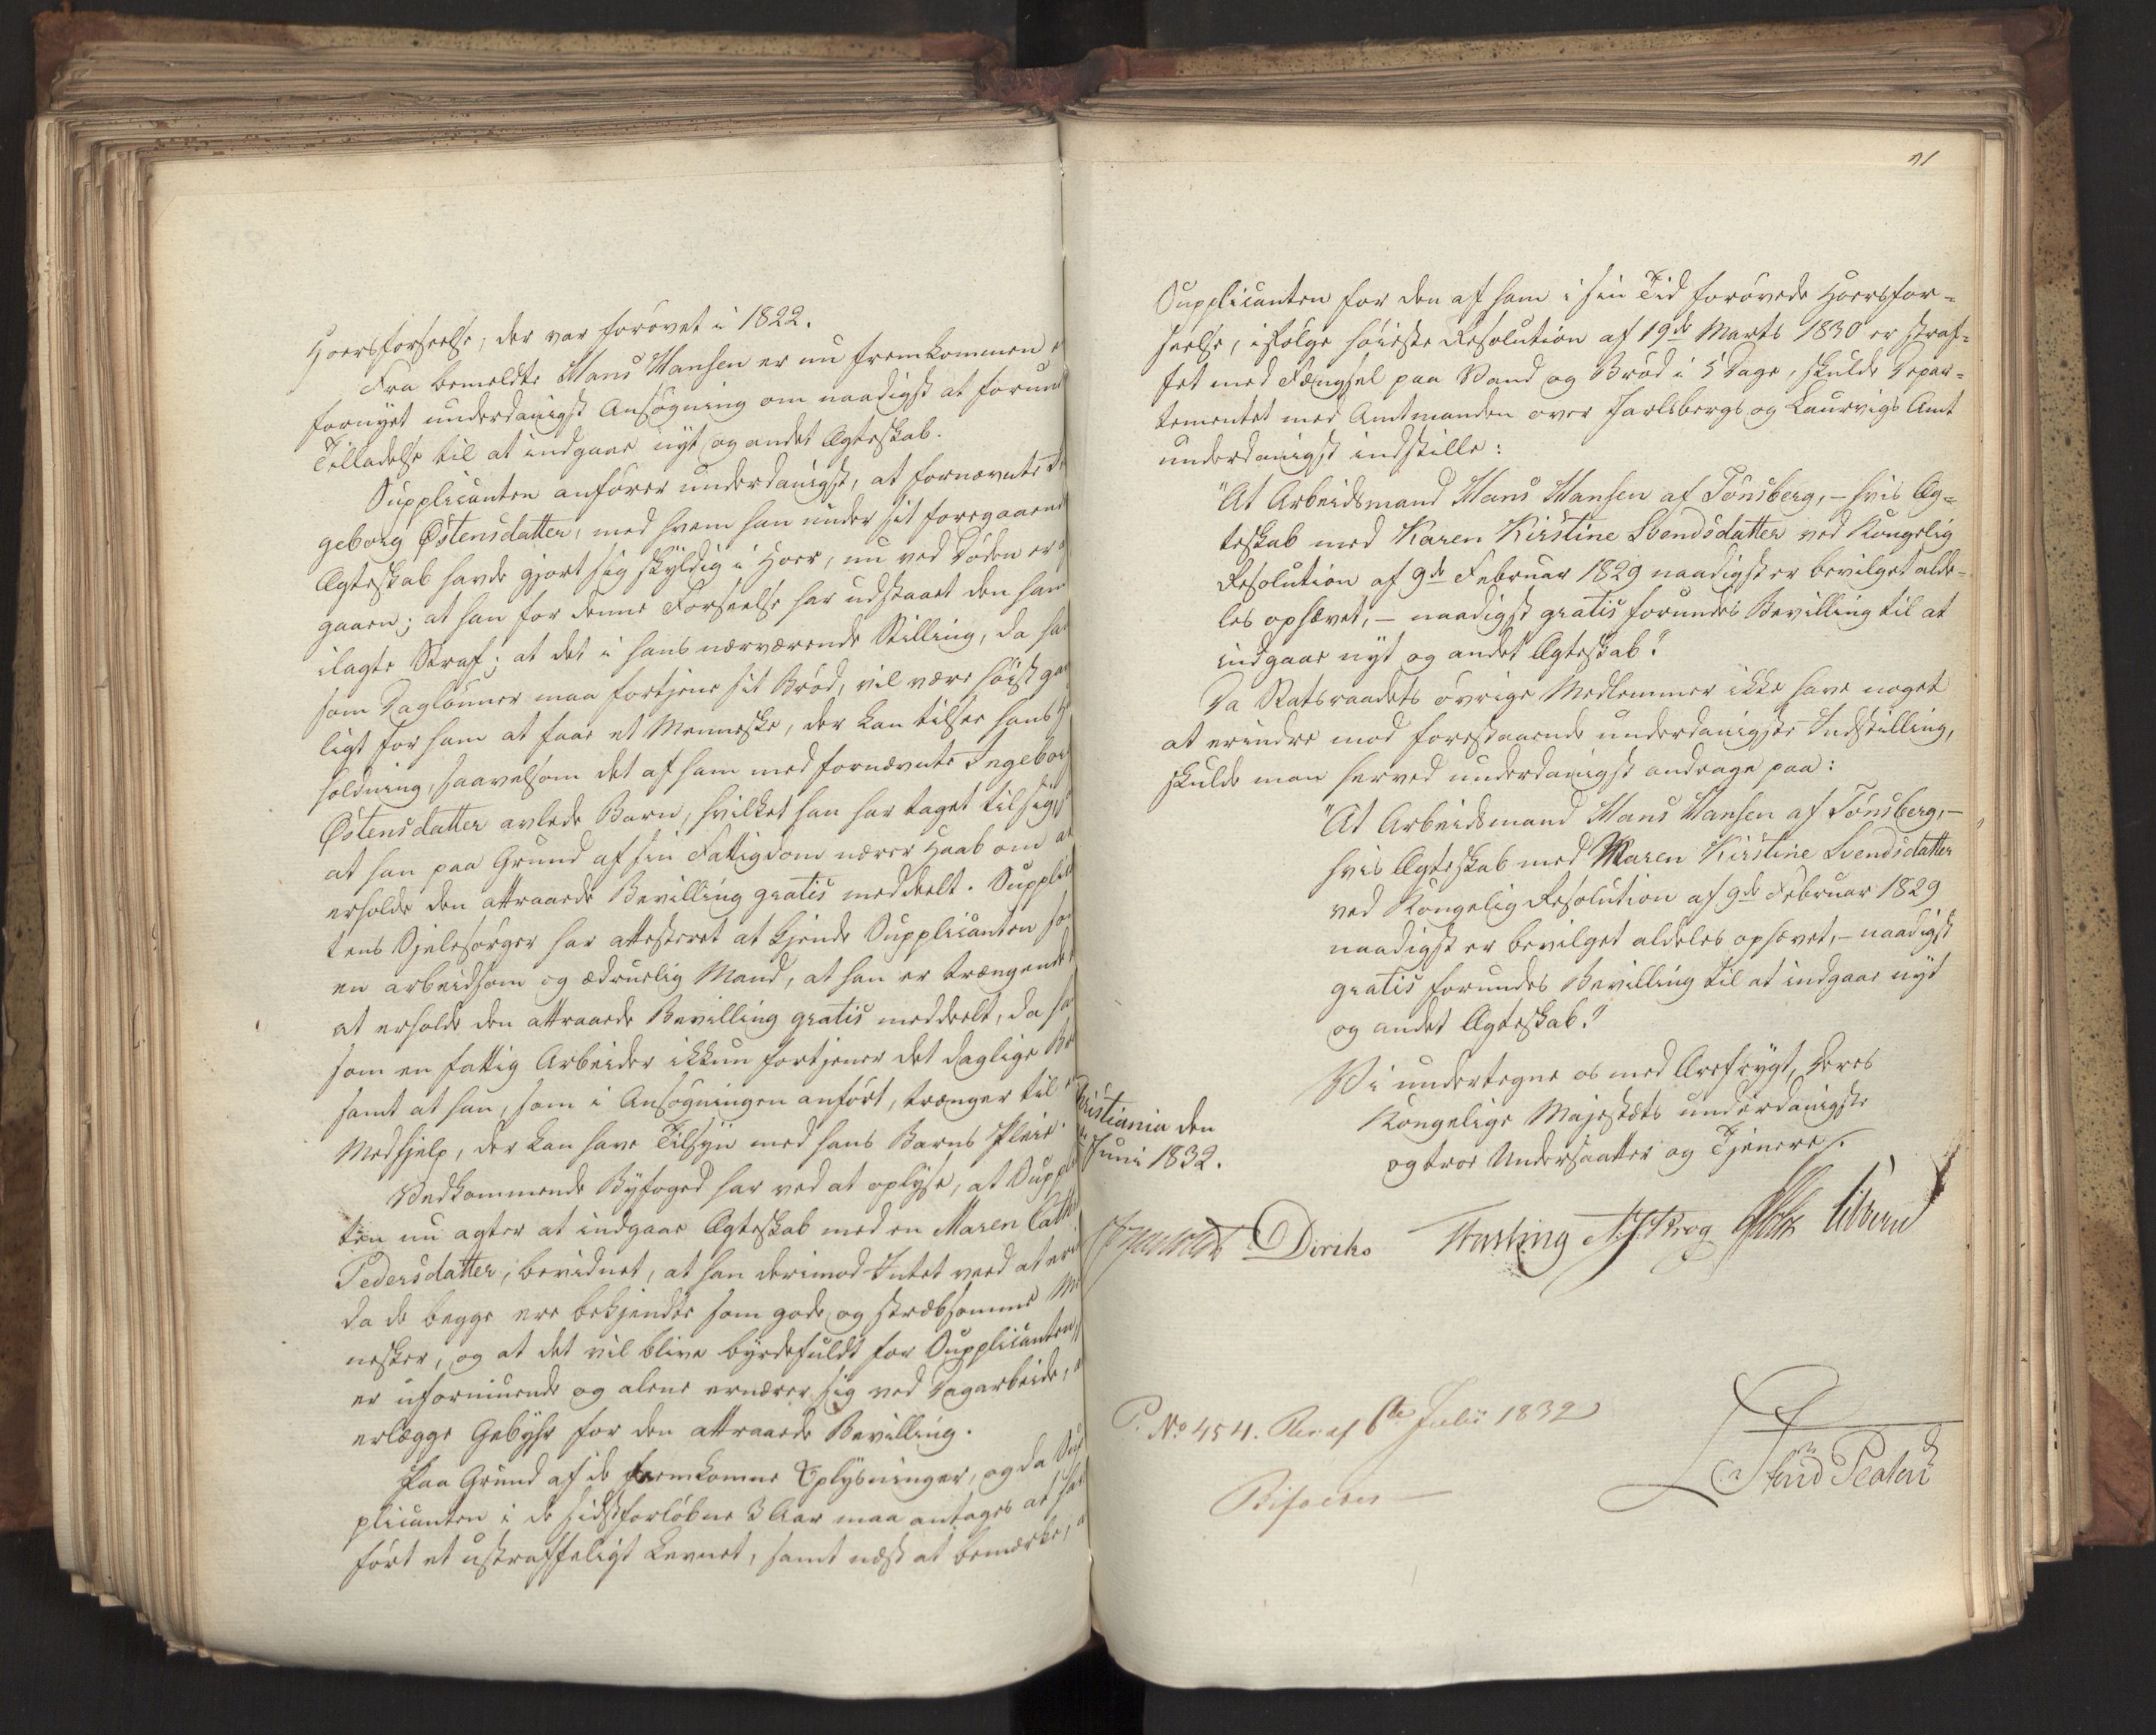 Hoersforseelse, der var forövet i 1822.
Fra bemeldte Hans Hansen er nu fremkommen
fornyet underdanigst Ansögning om naadigst at forun
Tilladelse til at indgaae nyt og andet Ægteskab.
Supplicanten anförer underdanigst, at fornævnte
geborg Östensdatter, med hvem han under sit foregaaen
Ægteskab havde gjort sig skyldig i Hoer, nu ved Döden er
gaaen; at han for denne Forseelse har udstaaet den ham
ilagte Straf; at det i hans nærværende Stilling, da han
som Daglönner maa fortjene sit Bröd, vil være höist gav
ligt for ham at faae et Menneske, der kan tilsee hans
holdning, saavelsom det af ham med fornævnte Ingeborg
Östensdatter avlede Barn, hvilket han har taget til sig,
at han paa Grund af sin Fattigdom nærer Haab om at
erholde den attraaede Bevilling gratis meddeelt. Supplic
tens Sjelesörger har attesteret at kjende Supplicanten som
en arbeidsom og ædruelig Mand, at han er trængende
at erholde den attraaede Bevilling gratis meddeelt, da han
som en fattig Arbeider ikkun fortjener det daglige Brö
samt at han, som i Ansögningen anfört, trænger til en
Medhjelp, der kan have Tilsyn med hans Barns Pleie.
Vedkommende Byfoged har ved at oplyse, at Suppli
ten nu agter at indgaae Ægteskab med en Maren Cath
Pedersdatter, bevidnet, at han derimod Intet veed at erin
da de begge ere bekjendte som gode og stræbsomme Me
nesker, og at det vil blive byrdefuldt for Supplicanten,
er uformuende og alene ernærer sig ved Dagarbeide,
erlægge Gebyhr for den attraaede Bevilling.
Paa Grund af de fremkomne Oplysninger, og da Sup
plicanten i de sidstforløbne 3 Aar maa antages at have
fört et ustraffeligt Levnet, samt næst at bemærke,
91
Supplicanten for den af ham i sin Tid forövede Hoersfor=
seelse, ifölge höieste Resolution af 19de Marts 1830 er straf=
fet med Fængsel paa Vand og Bröd i 5 Dage, skulde Depar=
tementet med Amtmanden over Jarlsbergs og Laurvigs Amt
underdanigst indstille:
"At Arbeidsmand Hans Hansen af Tönsberg, - hvis Æg=
teskab med Karen Kirstine Svendsdatter ved Kongelig
Resolution af 9de Februar 1829 naadigst er bevilget alde=
les ophævet, - naadigst gratis forundes Bevilling til at
indgaae nyt og andet Ægteskab."
Da Statsraadets övrige Medlemmer ikke have noget
at erindre mod forestaaende underdanigste Indstilling,
skulde man herved underdanigst andrage paa:
"At Arbeidsmand Hans Hansen af Tönsberg, -
hvis Ægteskab med Karen Kirstine Svendsdatter
ved Kongelig Resolution af 9de Februar 1829
naadigst er bevilget aldeles ophævet, - naadigst
gratis forundes Bevilling til at indgaae nyt
og andet Ægteskab."
Vi undertegne os med Ærefrygt, Deres
Kongelige Majestæts underdanigste
og troe Undersaatter og Tjenere.
ristiania den
Juni 1832.
Diriks Fasting Krog Holst Vibe
P. No 454. Res af 6te Julii 1832
Bifaldes